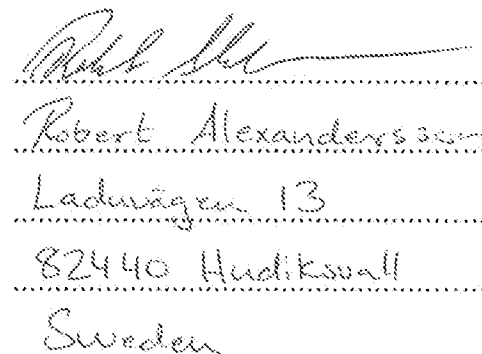 Robert Alexandersson
Laduvägen 13
82440 Hudiksvall
Sweden